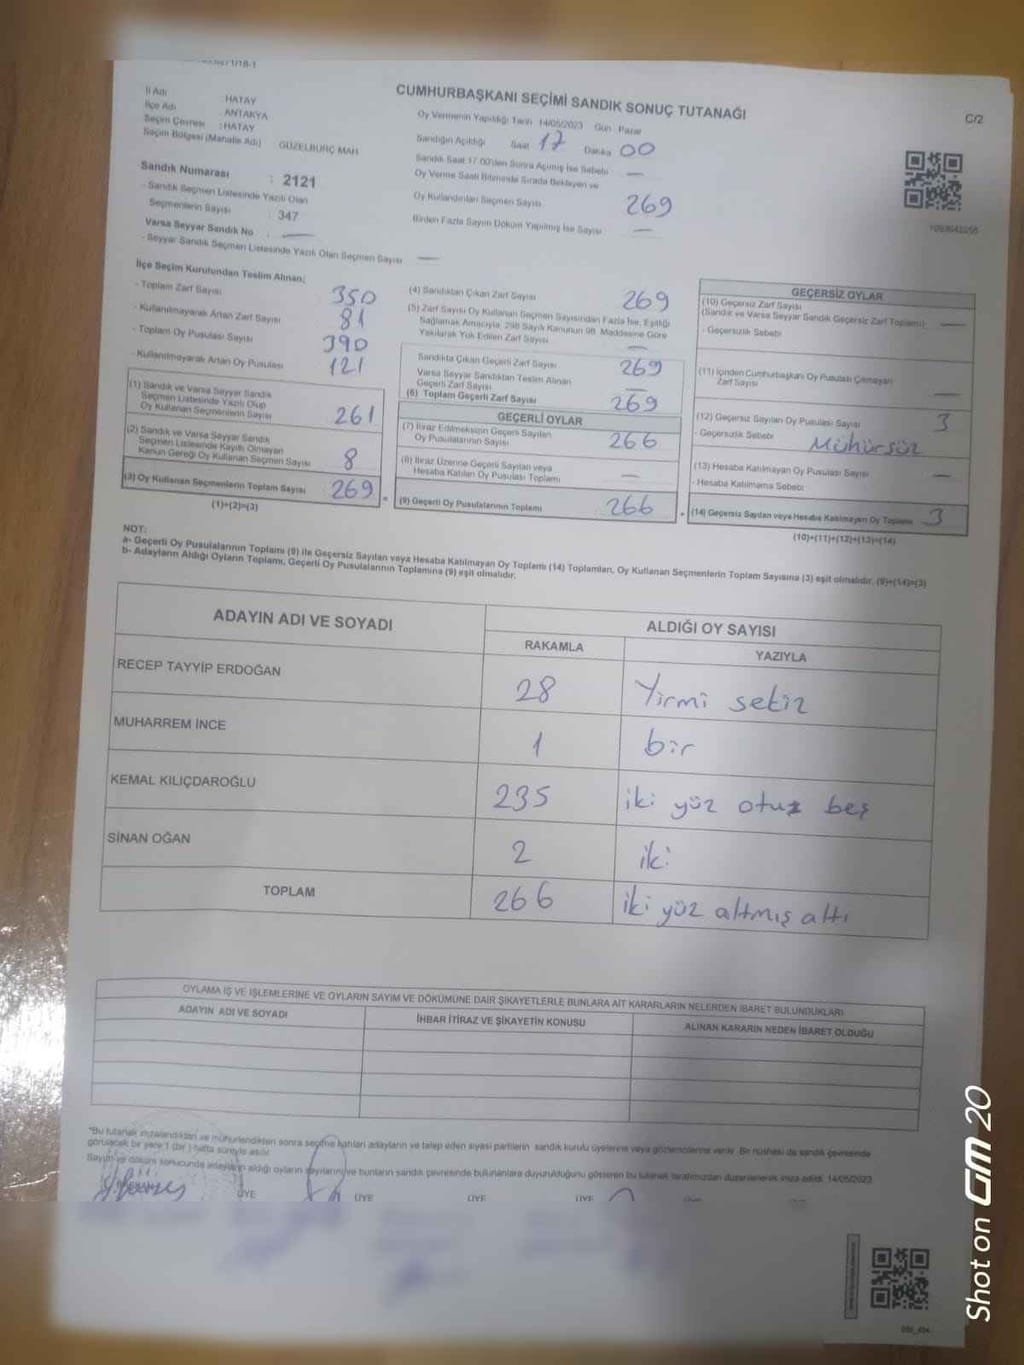 CUMHURBAŞKANI SEÇİMİ SANDIK SONUÇ TUTANAĞI
C/2
İl Adı HATAY
İlçe Adı ANTAKYA
Seçim Çevresi : HATAY
Seçim Bölgesi (Mahalle Adı) GÜZELBURÇ MAH
Oy Vermenin Yapıldığı Tarih 14/05/2023 Gün Pazar
Sandığın Açıldığı Saat 17 Dakika 00
Sandık Saat 17.00'den Sonra Açılmış İse Sebebi —
Oy Verme Saati Bitiminde Sırada Bekleyen ve
Oy Kullandırılan Seçmen Sayısı 269
Birden Fazla Sayım Döküm Yapılmış İse Sayısı —
Sandık Numarası : 2121
- Sandık Seçmen Listesinde Yazılı Olan
Seçmenlerin Sayısı : 347
Varsa Seyyar Sandık No —
- Seyyar Sandık Seçmen Listesinde Yazılı Olan Seçmen Sayısı —
İlçe Seçim Kurulundan Teslim Alınan;
- Toplam Zarf Sayısı 350
- Kullanılmayarak Artan Zarf Sayısı 81
- Toplam Oy Pusulası Sayısı 390
- Kullanılmayarak Artan Oy Pusulası 121
(1) Sandık ve Varsa Seyyar Sandık
Seçmen Listesinde Yazılı Olup
Oy Kullanan Seçmenlerin Sayısı 261
(2) Sandık ve Varsa Seyyar Sandık
Seçmen Listesinde Kayıtlı Olmayan
Kanun Gereği Oy Kullanan Seçmen Sayısı 8
(3) Oy Kullanan Seçmenlerin Toplam Sayısı 269
(1)+(2)=(3)
(4) Sandıktan Çıkan Zarf Sayısı 269
(5) Zarf Sayısı Oy Kullanan Seçmen Sayısından Fazla İse, Eşitliği
Sağlamak Amacıyla, 298 Sayılı Kanunun 98. Maddesine Göre
Yakılarak Yok Edilen Zarf Sayısı —
Sandıkta Çıkan Geçerli Zarf Sayısı 269
Varsa Seyyar Sandıktan Teslim Alınan
Geçerli Zarf Sayısı —
(6) Toplam Geçerli Zarf Sayısı 269
GEÇERLİ OYLAR
(7) İtiraz Edilmeksizin Geçerli Sayılan
Oy Pusulalarının Sayısı 266
(8) İtiraz Üzerine Geçerli Sayılan veya
Hesaba Katılan Oy Pusulası Toplamı —
(9) Geçerli Oy Pusulalarının Toplamı 266
GEÇERSİZ OYLAR
(10) Geçersiz Zarf Sayısı
(Sandık ve Varsa Seyyar Sandık Geçersiz Zarf Toplamı) —
- Geçersizlik Sebebi
(11) İçinden Cumhurbaşkanı Oy Pusulası Çıkmayan
Zarf Sayısı —
(12) Geçersiz Sayılan Oy Pusulası Sayısı 3
- Geçersizlik Sebebi Mühürsüz
(13) Hesaba Katılmayan Oy Pusulası Sayısı —
- Hesaba Katılmama Sebebi
(14) Geçersiz Sayılan veya Hesaba Katılmayan Oy Toplamı 3
(10)+(11)+(12)+(13)=(14)
NOT:
a- Geçerli Oy Pusulalarının Toplamı (9) ile Geçersiz Sayılan veya Hesaba Katılmayan Oy Toplamı (14) Toplamları, Oy Kullanan Seçmenlerin Toplam Sayısına (3) eşit olmalıdır. (9)+(14)=(3)
b- Adayların Aldığı Oyların Toplamı, Geçerli Oy Pusulalarının Toplamına (9) eşit olmalıdır.
ADAYIN ADI VE SOYADI
ALDIĞI OY SAYISI
RAKAMLA YAZIYLA
RECEP TAYYİP ERDOĞAN 28 Yirmi sekiz
MUHARREM İNCE 1 bir
KEMAL KILIÇDAROĞLU 235 iki yüz otuz beş
SİNAN OĞAN 2 iki
TOPLAM 266 iki yüz altmış altı
OYLAMA İŞ VE İŞLEMLERİNE VE OYLARIN SAYIM VE DÖKÜMÜNE DAİR ŞİKAYETLERLE BUNLARA AİT KARARLARIN NELERDEN İBARET BULUNDUKLARI
ADAYIN ADI VE SOYADI İHBAR İTİRAZ VE ŞİKAYETİN KONUSU ALINAN KARARIN NEDEN İBARET OLDUĞU
*Bu tutanak imzalandıktan ve mühürlendikten sonra seçime katılan adayların ve talep eden siyasi partilerin sandık kurulu üyelerine veya gözlemcilerine verilir. Bir nüshası da sandık çevresinde
görülecek bir yere 1 (bir) hafta süreyle asılır.
Sayım ve döküm sonucunda adayların aldığı oyların sayılarını ve bunların sandık çevresinde bulunanlara duyurulduğunu gösteren bu tutanak tarafımızdan düzenlenerek imza edildi. 14/05/2023
ÜYE ÜYE ÜYE ÜYE
Shot on GM 20